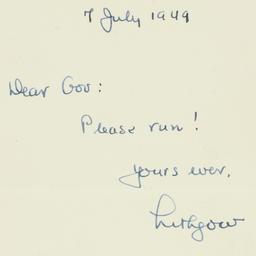 7 July 1949
Dear Gov:
Please run!
Yours ever,
Lithgow